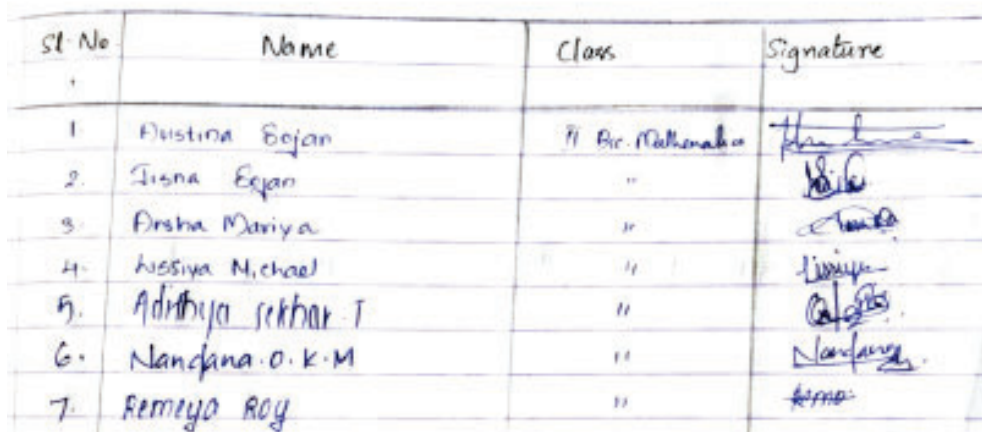 Sl. No Name Class Signature
1. Austina Eojan II Bsc. Mathematics
2. Jisna Eojan "
3. Arsha Mariya "
4. Lissiya Michael " Lissiya
5. Adithya Sekhar T "
6. Nandana. O. K. M " Nandana
7. Remeya Roy "